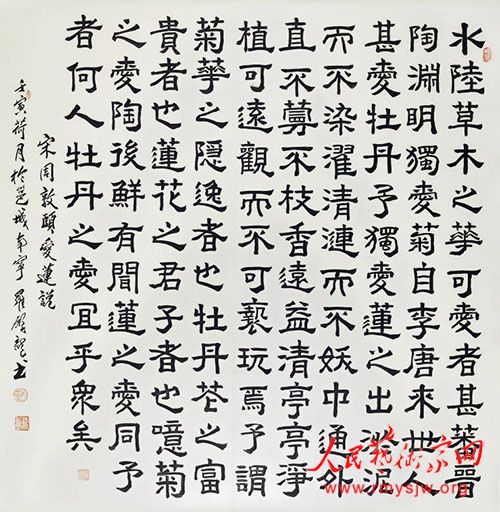 水陸草木之華可愛者甚蕃晉
陶淵明獨愛菊自李唐來世人
甚愛牡丹予獨愛蓮之出淤泥
而不染濯清漣而不妖中通外
直不蔓不枝香遠益清亭亭淨
植可遠觀而不可褻玩焉予謂
菊華之隱逸者也牡丹花之富
貴者也蓮花之君子者也噫菊
之愛陶後鮮有聞蓮之愛同予
者何人牡丹之愛宜乎衆矣
宋周敦頤愛蓮説
壬寅荷月於邕城南寧羅書
人民藝術家网
www.rmysjw.org